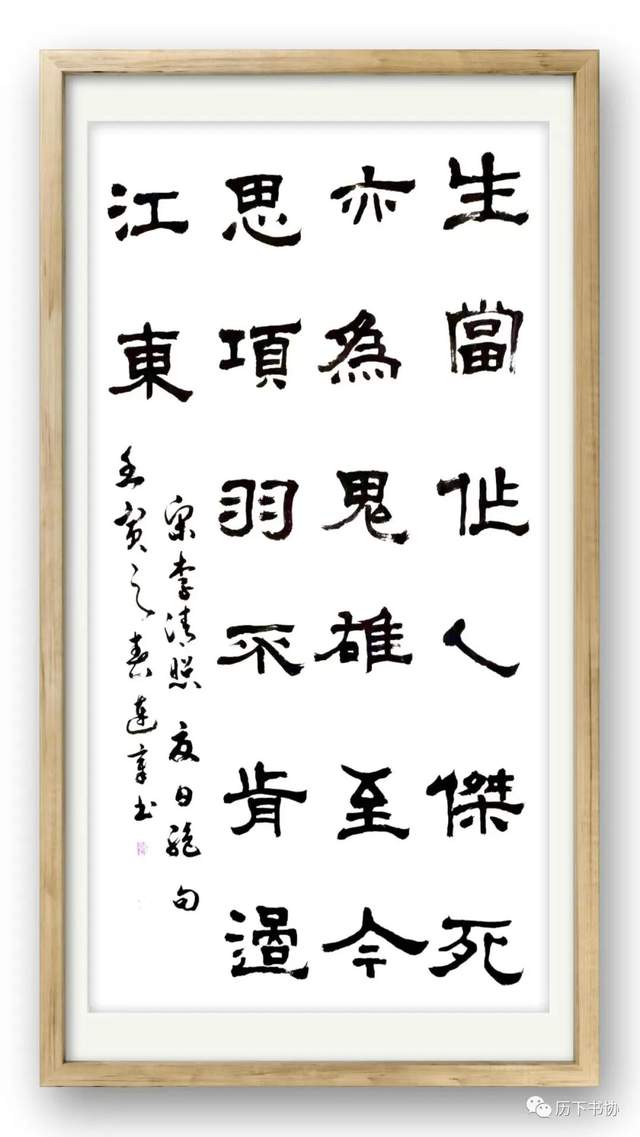 生當作人傑死
亦為鬼雄至今
思項羽不肯過
江東
宋李清照夏日絶句
壬寅之春章书
历下书协